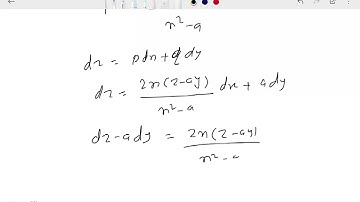 x²-a
dz = pdx + q dy
dz = 2x(z-ay) / x²-a dx + a dy
dz - a dy = 2x(z-ay) / x²-a